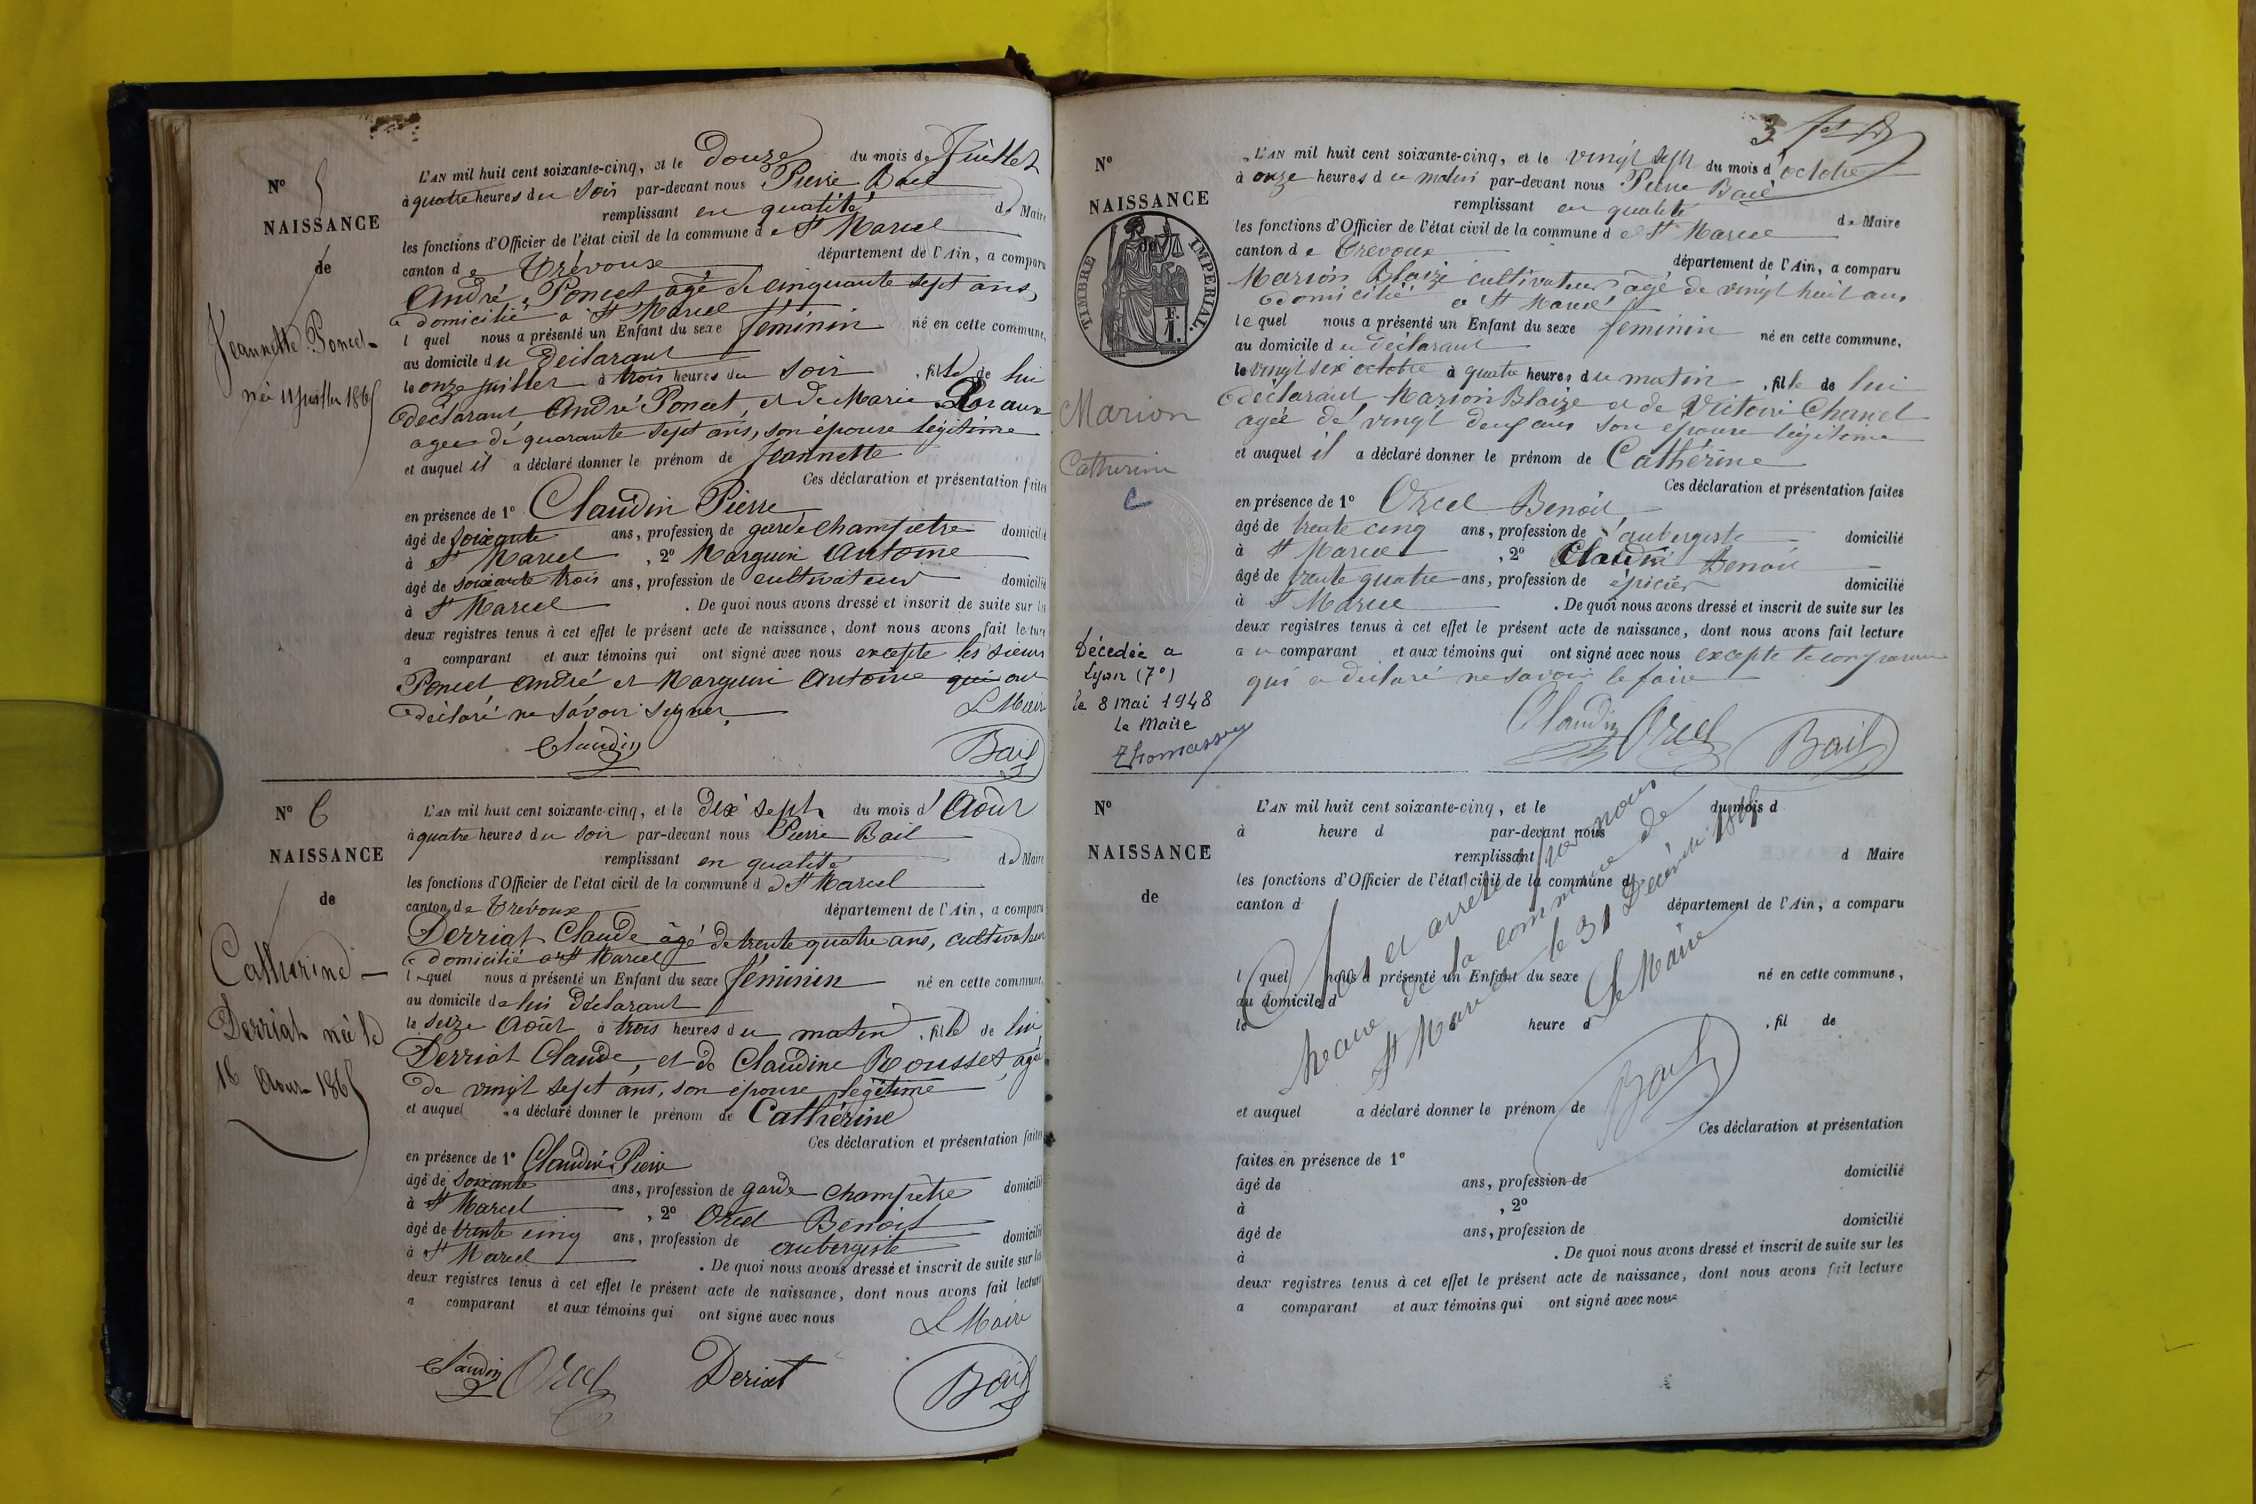 N° 5
NAISSANCE
de
Jeannette Poncet
née 11 juillet 1865
L'AN mil huit cent soixante-cinq, et le douze du mois de Juillet
à quatre heures du soir par-devant nous Pierre Bail
remplissant en qualité de Maire
les fonctions d'Officier de l'état civil de la commune de St Marcel
canton de Trévoux département de l'Ain, a comparu
André Poncet âgé de cinquante sept ans,
domicilié a St Marcel
l quel nous a présenté un Enfant du sexe féminin né en cette commune,
au domicile du déclarant
le onze juillet à trois heures du soir, fille de lui
déclarant, André Poncet, et de Marie
agée de quarante sept ans, son épouse légitime
et auquel il a déclaré donner le prénom de Jeannette
Ces déclaration et présentation faites
en présence de 1° Claudin Pierre
âgé de soixante ans, profession de garde champêtre domicilié
à St Marcel, 2° Marguin Antoine
âgé de soixante trois ans, profession de cultivateur domicilié
à St Marcel. De quoi nous avons dressé et inscrit de suite sur les
deux registres tenus à cet effet le présent acte de naissance, dont nous avons fait lecture
a comparant et aux témoins qui ont signé avec nous excepte les sieurs
Poncet André et Marguin Antoine qui ont
déclaré ne savoir signer
Le Maire
Claudin Bail
N° 6
NAISSANCE
de
Catherine
Derriat née le
16 Aout 1865
L'AN mil huit cent soixante-cinq, et le dix sept du mois d'Août
à quatre heures du soir par-devant nous Pierre Bail
remplissant en qualité de Maire
les fonctions d'Officier de l'état civil de la commune de St Marcel
canton de Trévoux département de l'Ain, a comparu
Derriat Claude âgé de trente quatre ans, cultivateur
domicilié a St Marcel
l quel nous a présenté un Enfant du sexe féminin né en cette commune,
au domicile de lui déclarant
le seize Août à trois heures du matin, fille de lui
Derriat Claude, et de Claudine Rousset, agée
de vingt sept ans, son épouse légitime
et auquel a déclaré donner le prénom de Cathérine
Ces déclaration et présentation faites
en présence de 1° Claudin Pierre
âgé de soixante ans, profession de garde champêtre domicilié
à St Marcel, 2° Orcel Benoit
âgé de trente cinq ans, profession de aubergiste domicilié
à St Marcel. De quoi nous avons dressé et inscrit de suite sur les
deux registres tenus à cet effet le présent acte de naissance, dont nous avons fait lecture
a comparant et aux témoins qui ont signé avec nous
Le Maire
Claudin Orcel Deriat Bail
3
N°
NAISSANCE
de
TIMBRE IMPERIAL.
F.
1.
Marion
Catherine
C
Décedée a
Lyon (7e)
le 8 mai 1948
Le Maire
Thomasson
L'AN mil huit cent soixante-cinq, et le vingt sept du mois d'octobre
à onze heures du matin par-devant nous Pierre Bail
remplissant en qualité de Maire
les fonctions d'Officier de l'état civil de la commune de St Marcel
canton de Trévoux département de l'Ain, a comparu
Marion Blaize cultivateur âgé de vingt huit ans
domicilié a St Marcel
le quel nous a présenté un Enfant du sexe féminin né en cette commune,
au domicile du déclarant
le vingt six octobre à quatre heures du matin, fille de lui
déclarant Marion Blaize et de Victoire Chanel
agée de vingt deux ans son épouse légitime
et auquel il a déclaré donner le prénom de Cathérine
Ces déclaration et présentation faites
en présence de 1° Orcel Benoit
âgé de trente cinq ans, profession de aubergiste domicilié
à St Marcel, 2° Claudin Benoit
âgé de trente quatre ans, profession de épicier domicilié
à St Marcel. De quoi nous avons dressé et inscrit de suite sur les
deux registres tenus à cet effet le présent acte de naissance, dont nous avons fait lecture
au comparant et aux témoins qui ont signé avec nous excepte le comparant
qui a déclaré ne savoir le faire
Claudin Orcel Bail
N°
NAISSANCE
de
L'AN mil huit cent soixante-cinq, et le du mois d
à heure d par-devant nous
remplissant d Maire
les fonctions d'Officier de l'état civil de la commune d
canton d département de l'Ain, a comparu
l quel nous a présenté un Enfant du sexe né en cette commune,
au domicile d
le heure d, fil de
et auquel a déclaré donner le prénom de
Ces déclaration et présentation
faites en présence de 1°
âgé de ans, profession de domicilié
à, 2°
âgé de ans, profession de domicilié
à. De quoi nous avons dressé et inscrit de suite sur les
deux registres tenus à cet effet le présent acte de naissance, dont nous avons fait lecture
a comparant et aux témoins qui ont signé avec nous
Clos et arrêté par nous
Maire de la commune de
St Marcel le 31 Décembre 1865
Le Maire
Bail